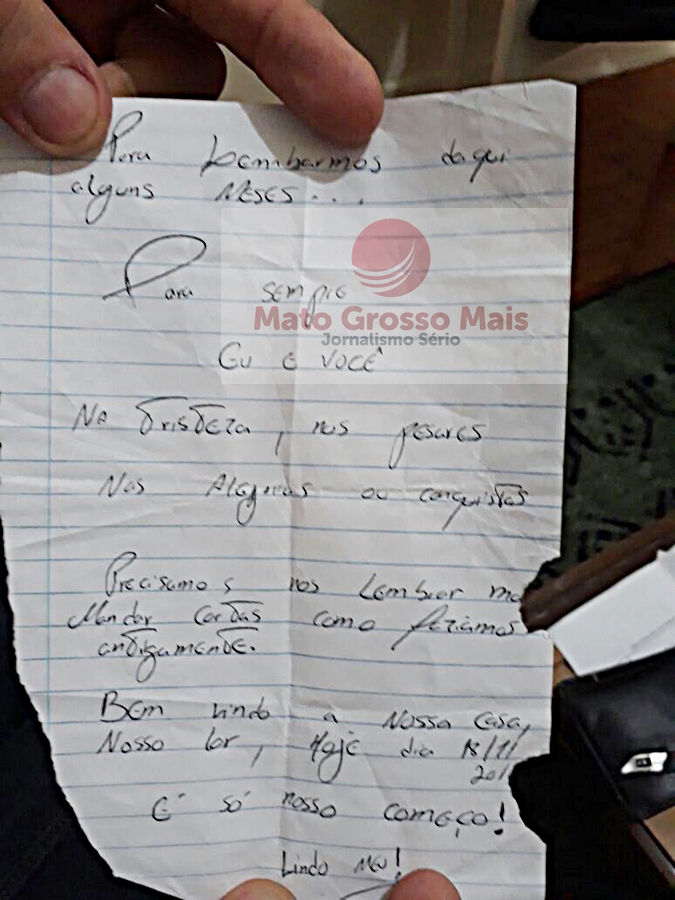 Para Lembarmos daqui
alguns MESES...
Para sempre
Mato Grosso Mais
Jornalismo Sério
EU E VOCÊ
NA TrisTEza, nos pesares
Nas Alegrias ou conquistas
Precisamos nos Lembrar
Mandar cartas como faziamos
antigamente.
BEM vindo a Nossa casa,
Nosso lar, Hoje dia 18/11/
E só nosso começo!
Lindo MEU!